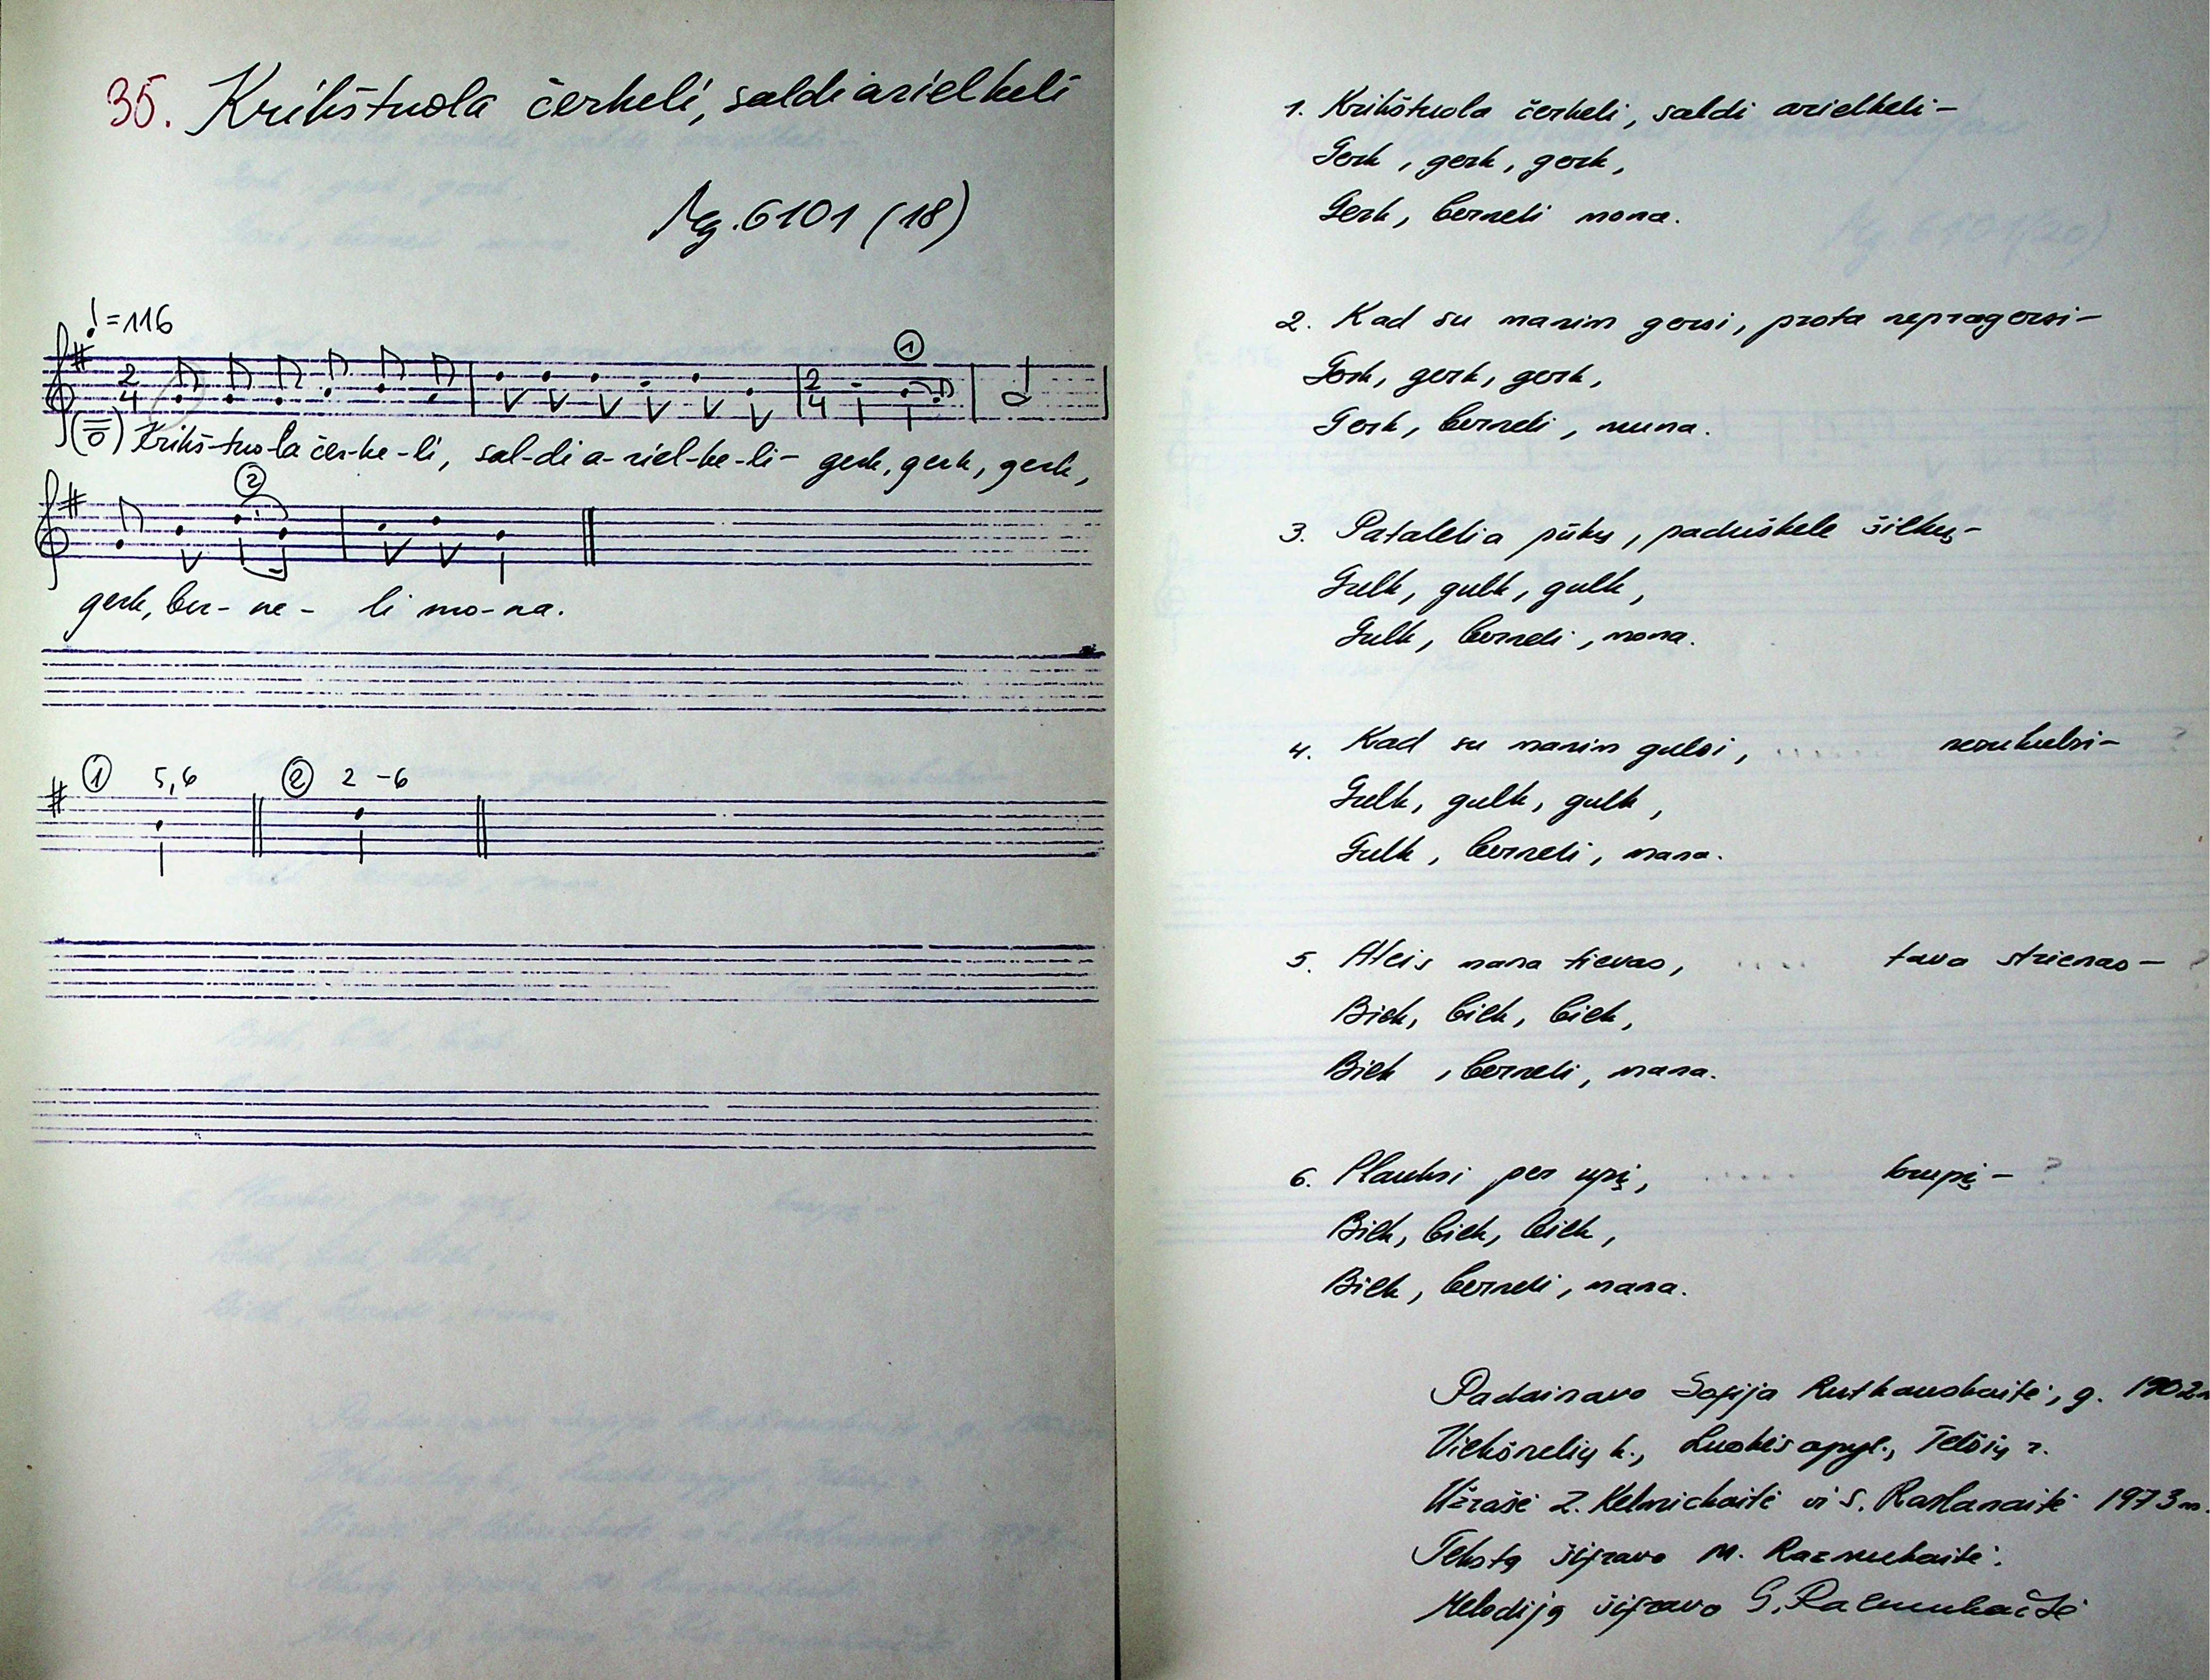 35. Krikštuola čerkeli, saldi arielkeli
Mg. 6101 (18)
♩=116
2/4
2/4
①
Krikš-tuo-la čer-ke-li, sal-di a-riel-ke-li- gerk, gerk, gerk,
②
gerk, ber-ne- li mo-na.
① 5,6 ② 2-6
1. Krikštuola čerkeli, saldi arielkeli-
Gerk, gerk, gerk,
Gerk, berneli mona.
2. Kad su manim gersi, prota nepragersi-
Gerk, gerk, gerk,
Gerk, berneli, muna.
3. Patalelia pūkų, paduškele šilkų-
Gulk, gulk, gulk,
Gulk, berneli, mona.
4. Kad su manim gulsi, ...... nesukulsi-
Gulk, gulk, gulk,
Gulk, berneli, mana.
5. Ateis mana tievas, ..... tava strienas-
Biek, biek, biek,
Biek, berneli, mana.
6. Plauksi per upį, ...... krupį- ?
Biek, biek, biek,
Biek, berneli, mana.
Padainavo Sofija Rutkauskaitė, g. 1902
Viekšnelių k., Luokės apyl., Telšių r.
Užrašė Z. Kelmickaitė ir S. Raslanaitė 1973 m.
Tekstą šifravo M. Razmukaitė.
Melodiją šifravo G. Razmukaitė